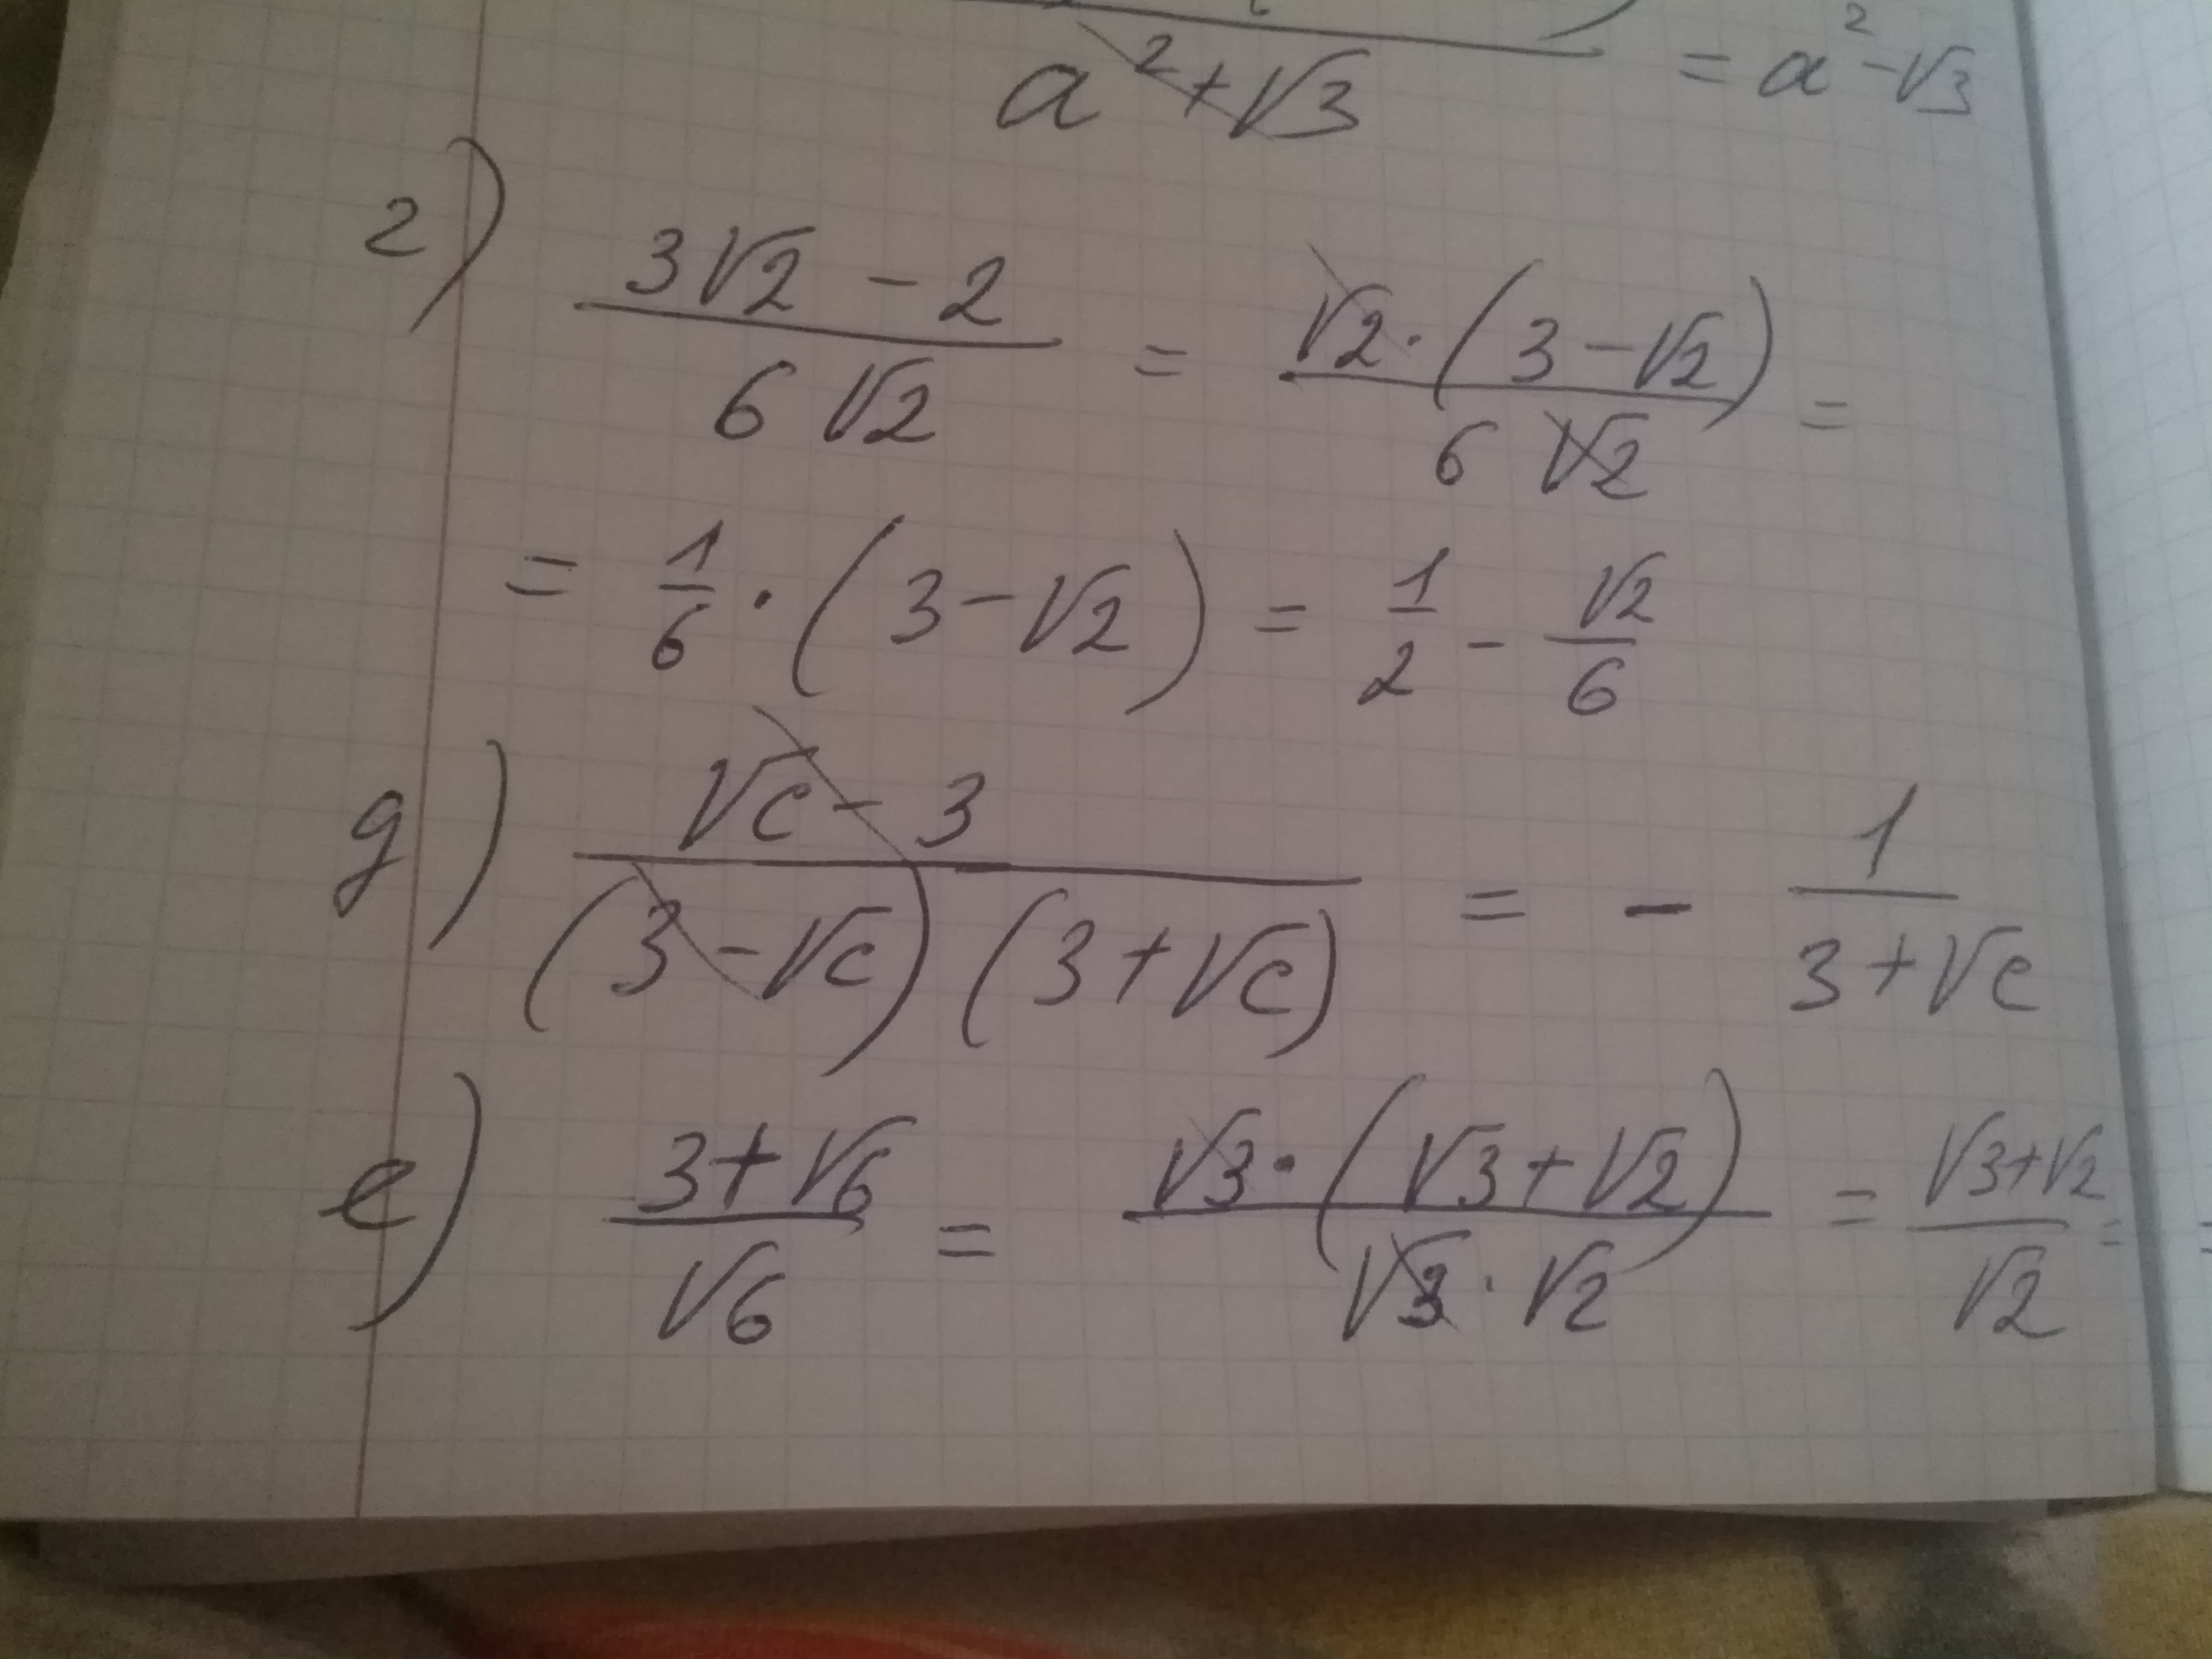 a² + √3 = a² - √3
г) (3√2 - 2)/(6√2) = (√2 · (3 - √2))/(6√2) =
= 1/6 · (3 - √2) = 1/2 - √2/6
д) (√c - 3)/((3 - √c)(3 + √c)) = - 1/(3 + √c)
е) (3 + √6)/√6 = (√3 · (√3 + √2))/(√3 · √2) = (√3 + √2)/√2 =